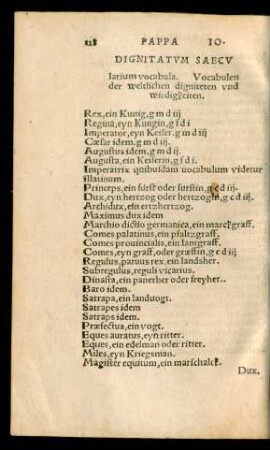 128 PAPPA IO.
DIGNITATVM SAECV
larium vocabula. Vocabulen
der weltlichen digniteten vnd
wirdigkeiten.
Rex, ein Kunig, g m d iij
Regina, eyn Kungin, g f d i.
Imperator, eyn Keiser. g m d iij
Cæsar idem. g m d ij.
Augustus idem, g m d ij.
Augusta, ein Keiserin, g f d i.
Imperatrix quibusdam uocabulum videtur
illatinum.
Princeps, ein fürst oder furstin, g c d iij.
Dux, eyn hertzog oder hertzogin, g c d iij.
Archidux, ein ertzhertzog.
Maximus dux idem
Marchio dictio germanica, ein marckgraff.
Comes palatinus, ein pfaltzgraff.
Comes prouincialis, ein lantgraff.
Comes, eyn graff, oder gräffin, g c d iij
Regulus, paruus rex, ein landsher.
Subregulus, reguli vicarius.
Dinasta, ein panerher oder freyher..
Baro idem.
Satrapa, ein landuogt.
Satrapes idem
Satraps idem.
Præfectus, ein vogt.
Eques auratus, eyn ritter.
Eques, ein edelman oder ritter.
Miles, eyn Kriegsman.
Magister equitum, ein marschalck.
Dux.